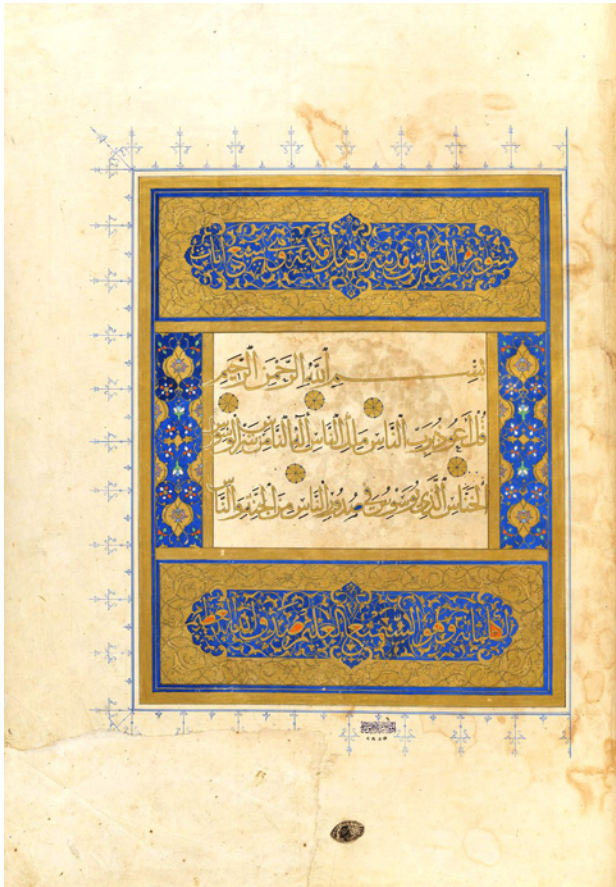 سورة الناس مدنية وقيل مكية وهي سبع آيات
بسم الله الرحمن الرحيم
قل أعوذ برب الناس ملك الناس إله الناس من شر الوسواس
الخناس الذي يوسوس في صدور الناس من الجنة والناس
لكلماته وهو السميع العليم